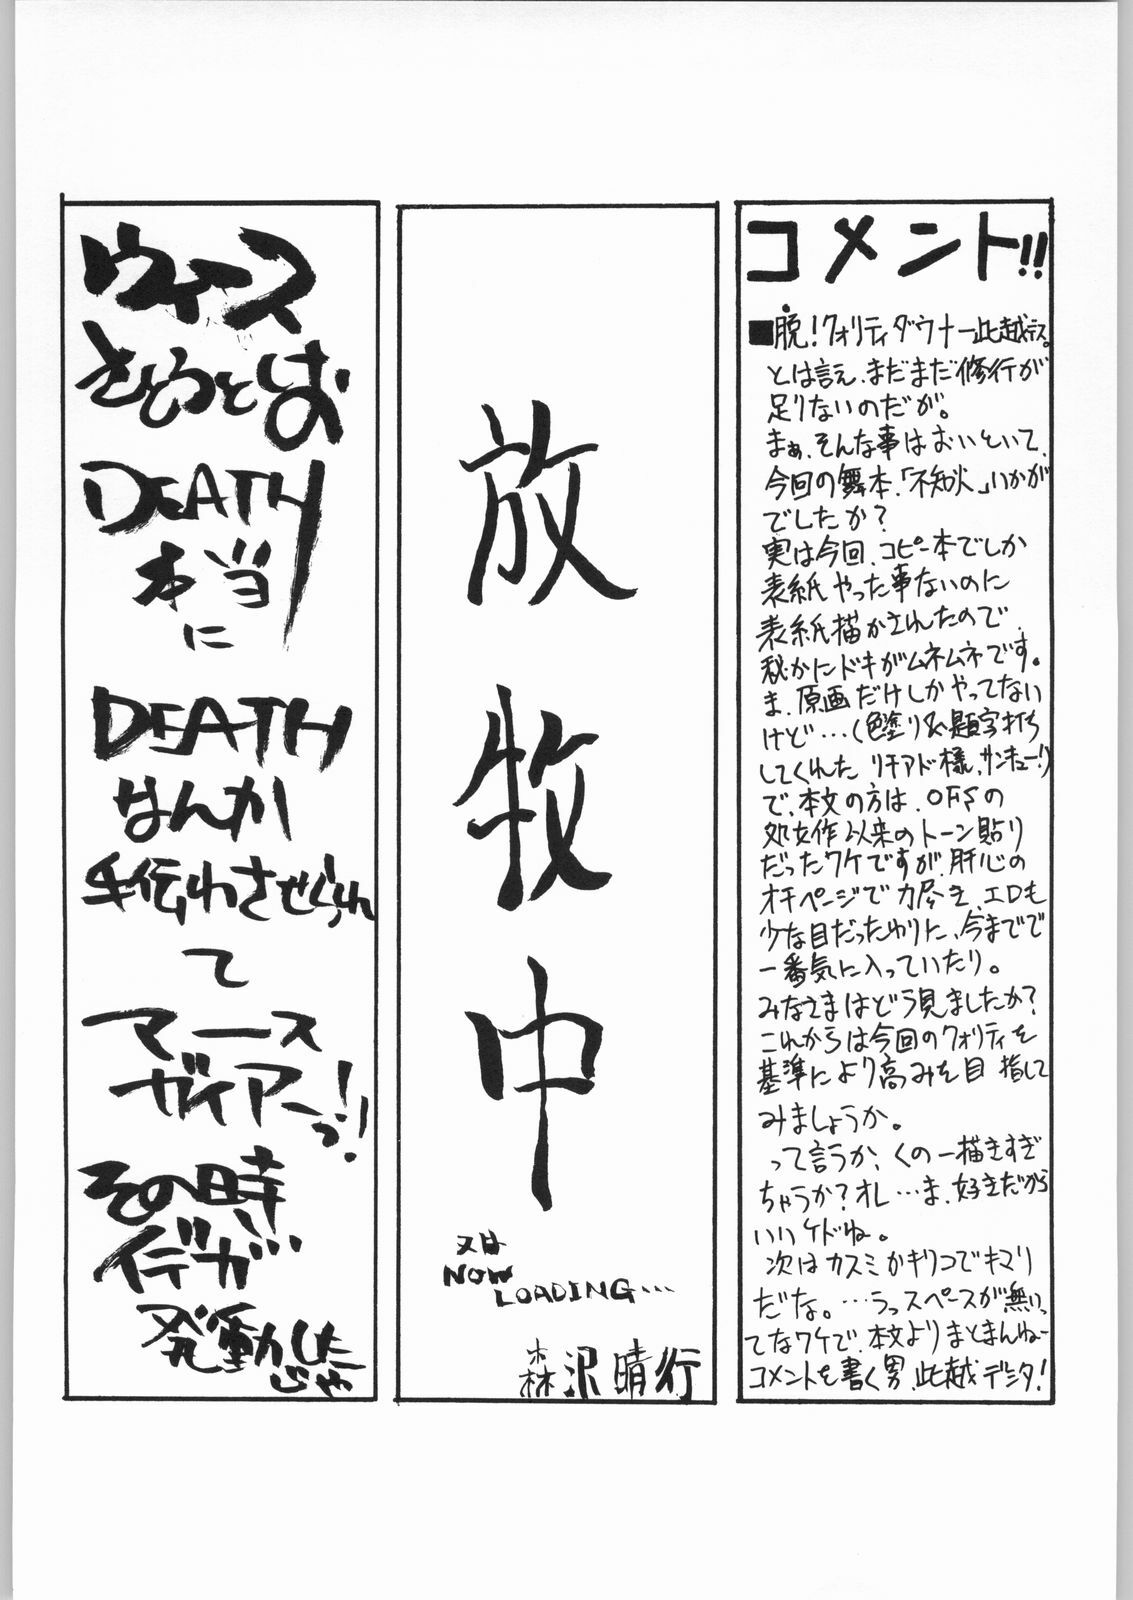 コメント!!
■脱！クォリティダウナー此越デス。
とは言え、まだまだ修行が
足りないのだが。
まぁ、そんな事はおいといて、
今回の舞本、「不知火」いかが
でしたか？
実は今回、コピー本でしか
表紙やった事ないのに
表紙描かされたので、
秘かにドキがムネムネです。
ま、原画だけしかやってない
けど…(色塗り&題字打ち
してくれた リチアド様、サンキュー!)
で、本文の方は、OFSの
処女作以来のトーン貼り
だったワケですが、肝心の
オチページで力尽き、エロも
少な目だったわりに、今までで
一番気に入っていたり。
みなさまはどう見ましたか？
これからは今回のクォリティを
基準により高みを目指して
みましょうか。
って言うか、くの一描きすぎ
ちゃうか？オレ…ま、好きだから
いいケドね。
次はカスミかキリコでキマリ
だな。…うっスペースが無いっ
てなワケで、本文よりまとまんねー
コメントを書く男、此越デジタ！
放牧中
又は
NOW
LOADING…
森沢晴行
ウィース
さとうとしお
DEATH
本当
に
DEATH
なんか
手伝わさせられ
て
マース
ガイアーっ!!
その時
イデが…
発動した
じゃ